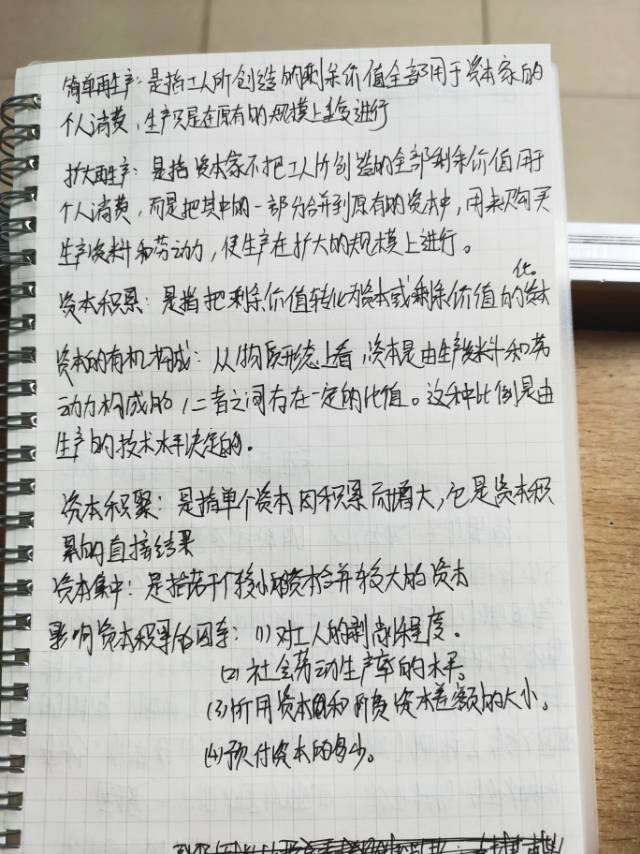 简单再生产：是指工人所创造的剩余价值全部用于资本家的
个人消费，生产只是在原有的规模上重复进行
扩大再生产：是指资本家不把工人所创造的全部剩余价值用于
个人消费，而是把其中的一部分合并到原有的资本中，用来购买
生产资料和劳动力，使生产在扩大的规模上进行。
资本积累：是指把剩余价值转化为资本或剩余价值的资本化。
资本的有机构成：从物质形态上看，资本是由生产资料和劳
动力构成的，二者之间存在一定的比值。这种比例是由
生产的技术水平决定的。
资本积聚：是指单个资本因积累而增大，它是资本积
累的直接结果
资本集中：是指若干个较小的资本合并较大的资本
影响资本积累的因素：(1)对工人的剥削程度。
(2)社会劳动生产率的水平。
(3)所用资本和所费资本差额的大小。
(4)预付资本的多少。